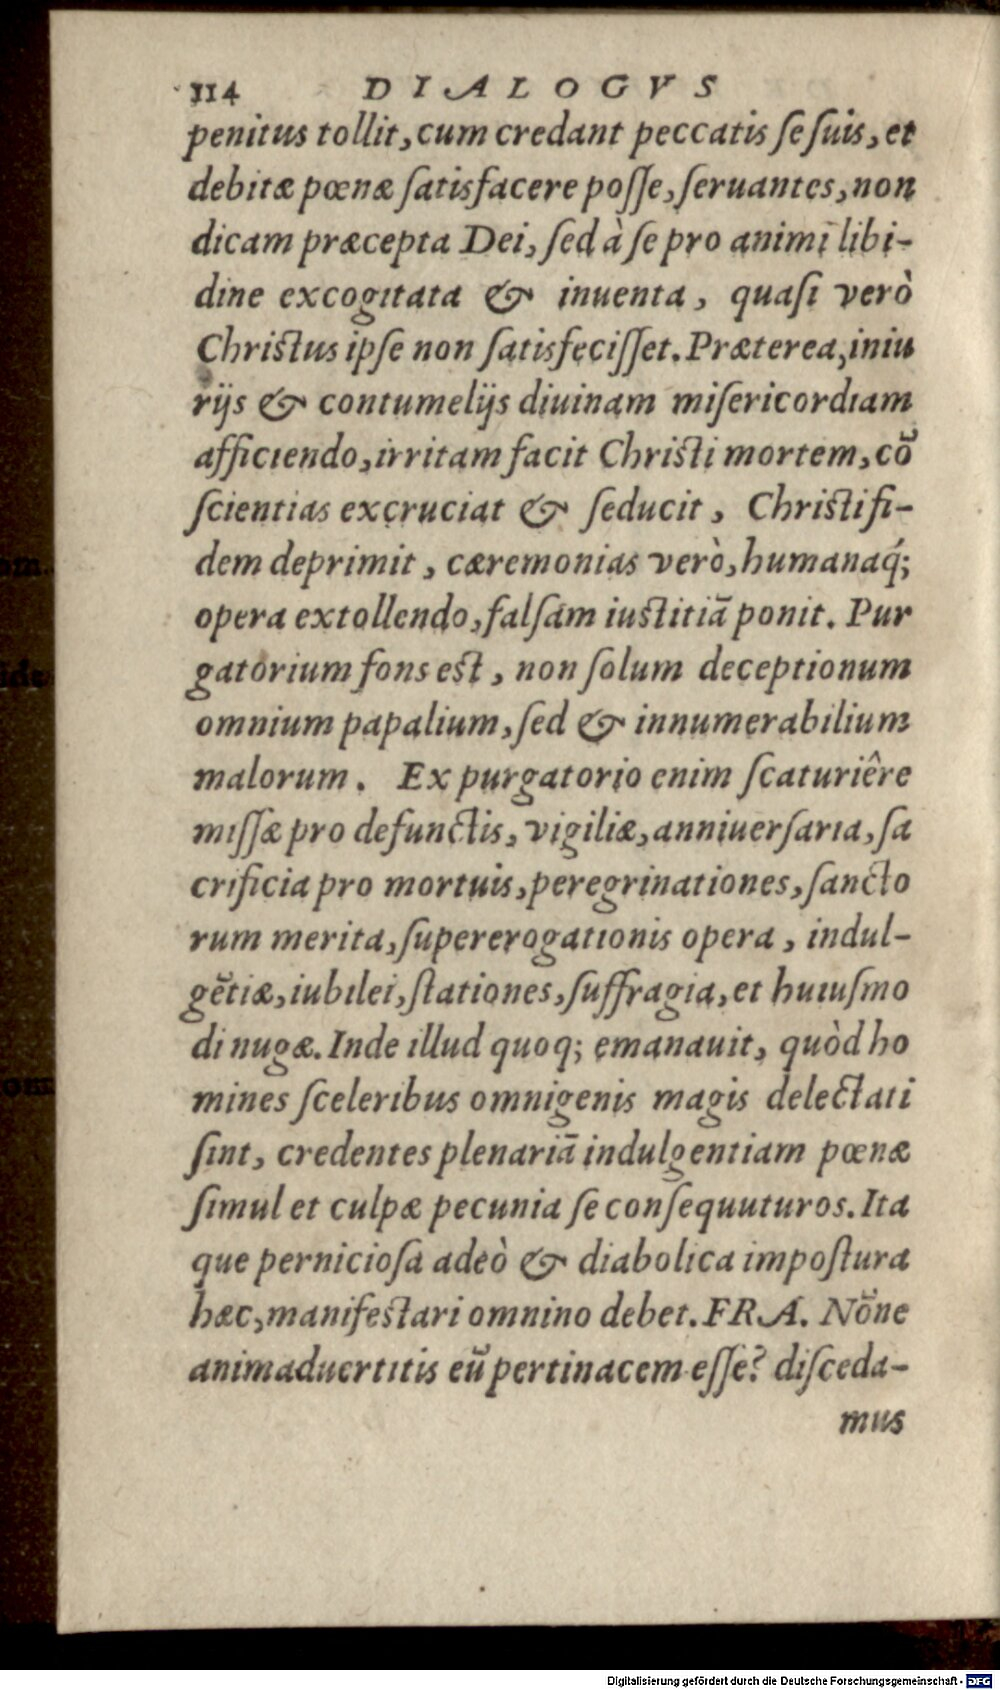 114 DIALOGVS
penitus tollit, cum credant peccatis ſe ſuis, et
debitæ pœnæ ſatisfacere poſſe, ſeruantes, non
dicam præcepta Dei, ſed à ſe pro animi libi-
dine excogitata & inuenta, quaſi verò
Christus ipſe non ſatisfeciſſet. Præterea, iniu
rijs & contumelijs diuinam miſericordiam
afficiendo, irritam facit Christi mortem, cō
ſcientias excruciat & ſeducit, Christi fi-
dem deprimit, cæremonias verò, humanaq́;
opera extollendo, falſam iustitiā ponit. Pur
gatorium fons est, non ſolum deceptionum
omnium papalium, ſed & innumerabilium
malorum. Ex purgatorio enim ſcaturiêre
miſſæ pro defunctis, vigiliæ, anniuerſaria, ſa
crificia pro mortuis, peregrinationes, ſancto
rum merita, ſupererogationis opera, indul-
gētiæ, iubilei, ſtationes, ſuffragia, et huiuſmo
di nugæ. Inde illud quoq; emanauit, quòd ho
mines ſceleribus omnigenis magis delectati
ſint, credentes plenariā indulgentiam pœnæ
ſimul et culpæ pecunia ſe conſequuturos. Ita
que pernicioſa adeò & diabolica impoſtura
hæc, manifestari omnino debet. FRA. Nōne
animaduertitis eū pertinacem eſſe? diſceda-
mus
Digitalisierung gefördert durch die Deutsche Forschungsgemeinschaft - DFG